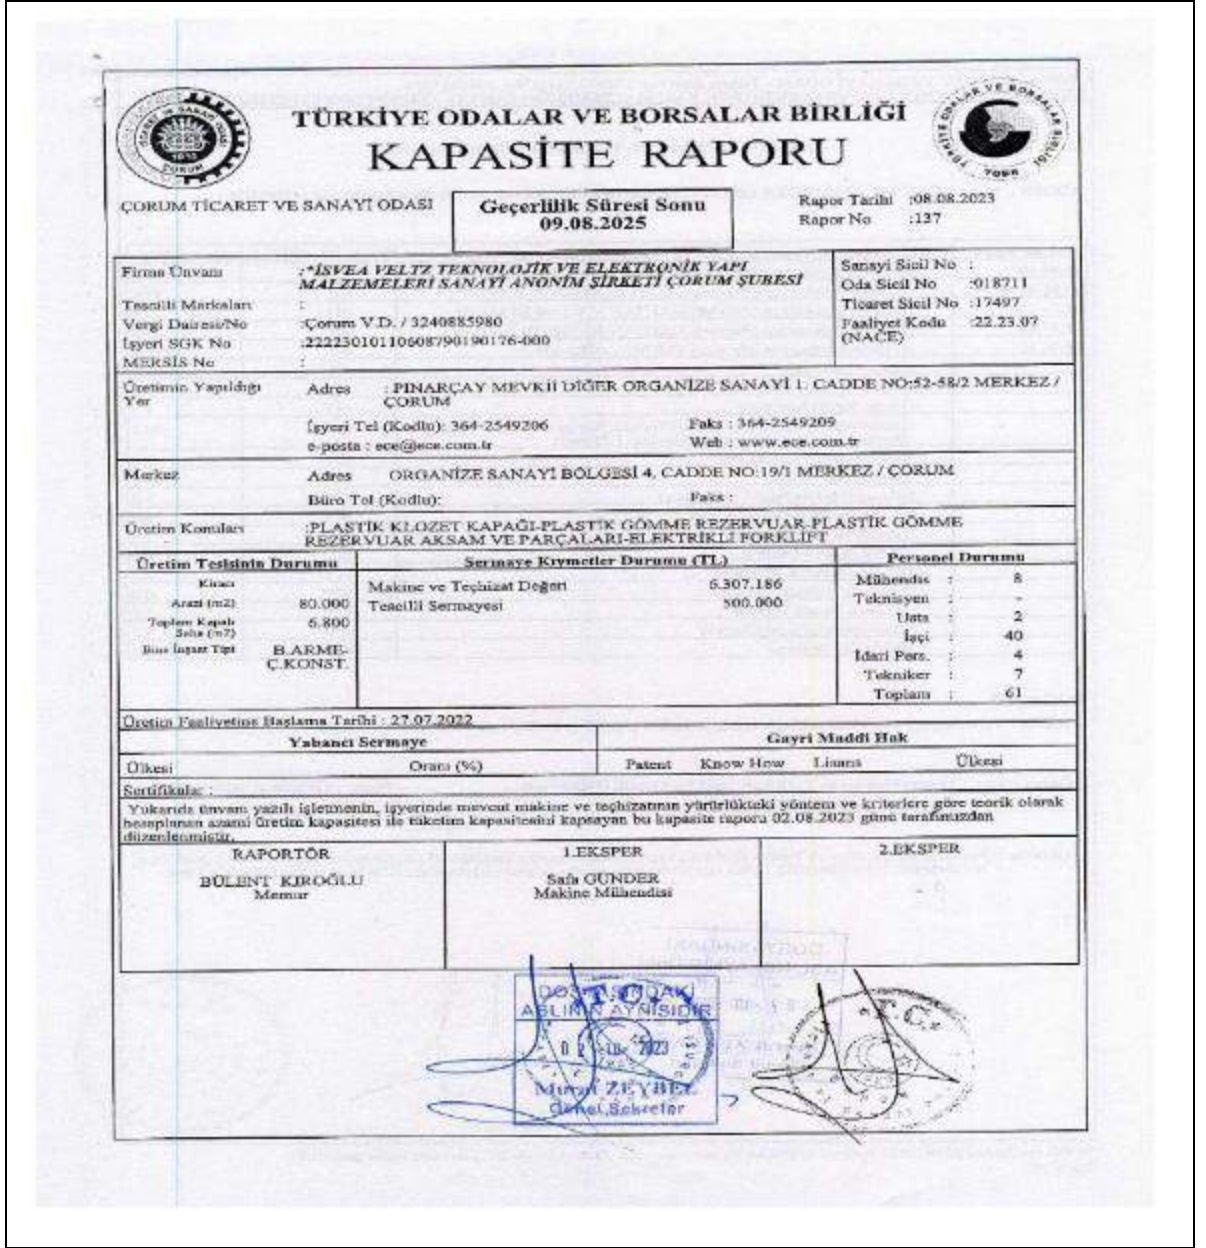 TÜRKİYE ODALAR VE BORSALAR BİRLİĞİ
KAPASİTE RAPORU
ÇORUM TİCARET VE SANAYİ ODASI
Geçerlilik Süresi Sonu
09.08.2025
Rapor Tarihi :08.08.2023
Rapor No :137
Firma Ünvanı :*İSVEA VELTZ TEKNOLOJİK VE ELEKTRONİK YAPI
MALZEMELERİ SANAYİ ANONİM ŞİRKETİ ÇORUM ŞUBESİ
Tescilli Markaları :
Vergi Dairesi/No :Çorum V.D. / 3240885980
İşyeri SGK No :22223010110608790190176-000
MERSİS No :
Sanayi Sicil No :
Oda Sicil No :018711
Ticaret Sicil No :17497
Faaliyet Kodu :22.23.07
(NACE)
Üretimin Yapıldığı Yer
Adres : PINARÇAY MEVKİİ DİĞER ORGANİZE SANAYİ 1. CADDE NO:52-58/2 MERKEZ /
ÇORUM
İşyeri Tel (Kodlu): 364-2549206 Faks : 364-2549209
e-posta : ece@ece.com.tr Web : www.ece.com.tr
Merkez Adres ORGANİZE SANAYİ BÖLGESİ 4. CADDE NO:19/1 MERKEZ / ÇORUM
Büro Tel (Kodlu): Faks :
Üretim Konuları :PLASTİK KLOZET KAPAĞI-PLASTİK GÖMME REZERVUAR-PLASTİK GÖMME
REZERVUAR AKSAM VE PARÇALARI-ELEKTRİKLİ FORKLİFT
Üretim Tesisinin Durumu
Kirası
Arazi (m2) 80.000
Toplam Kapalı Saha (m2) 6.800
Bina İnşaat Tipi B.ARME-
Ç.KONST.
Sermaye Kıymetler Durumu (TL)
Makine ve Teçhizat Değeri 6.307.186
Tescilli Sermayesi 500.000
Personel Durumu
Mühendis : 8
Teknisyen : -
Usta : 2
İşçi : 40
İdari Pers. : 4
Tekniker : 7
Toplam : 61
Üretim Faaliyetine Başlama Tarihi : 27.07.2022
Yabancı Sermaye
Gayri Maddi Hak
Ülkesi Oranı (%)
Patent Know How Lisans Ülkesi
Sertifikalar :
Yukarıda ünvanı yazılı işletmenin, işyerinde mevcut makine ve teçhizatının yürürlükteki yöntem ve kriterlere göre teorik olarak
hesaplanan azami üretim kapasitesi ile tüketim kapasitesini kapsayan bu kapasite raporu 02.08.2023 günü tarafımızdan
düzenlenmiştir.
RAPORTÖR
BÜLENT KIROĞLU
Memur
1.EKSPER
Safa GÜNDER
Makine Mühendisi
2.EKSPER
DOSYASINDAKİ
ASLININ AYNISIDIR
T.C.
2023
Murat ZEYBEL
Genel Sekreter
T.C.